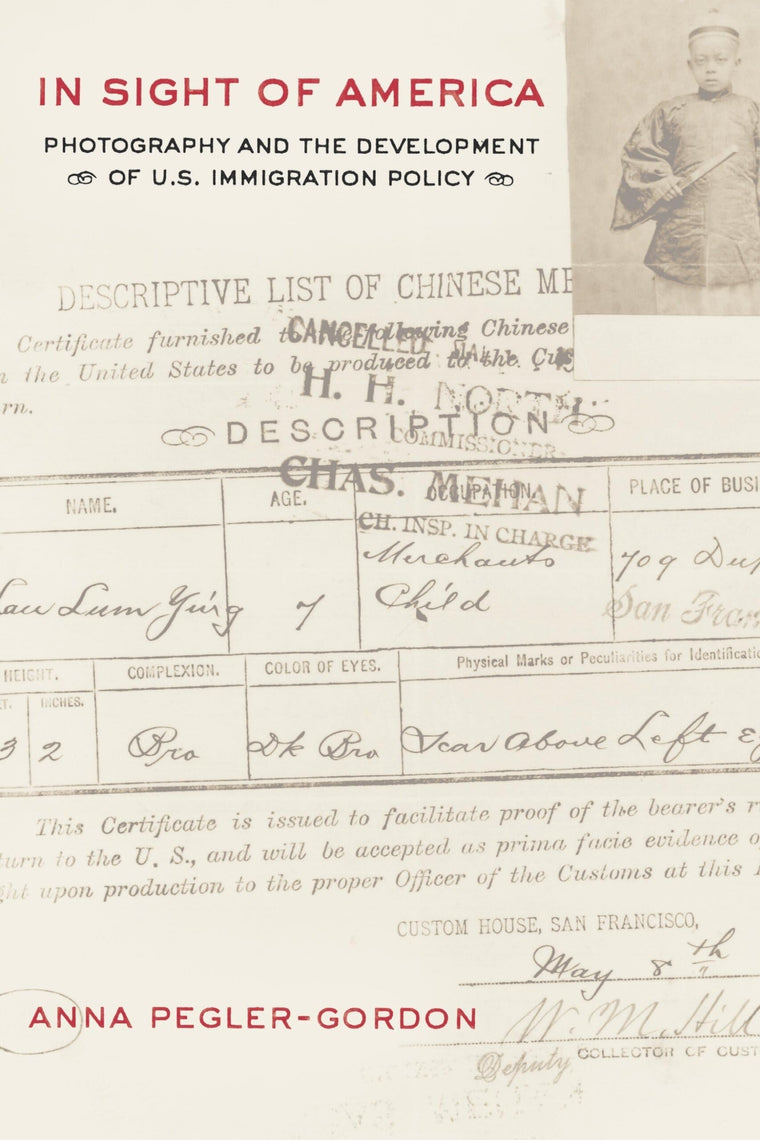 IN SIGHT OF AMERICA
PHOTOGRAPHY AND THE DEVELOPMENT
OF U.S. IMMIGRATION POLICY
DESCRIPTIVE LIST OF CHINESE ME
Certificate furnished to the following Chinese
CANCELLED
n the United States to be produced to the Cus
H. H. NORTH
rn.
DESCRIPTION
COMMISSIONER
CHAS. MEHAN
CH. INSP. IN CHARGE
NAME. AGE. OCCUPATION PLACE OF BUSI
Lau Lum Ying 7 Merchants Child 709 Dup
San Fran
HEIGHT. COMPLEXION. COLOR OF EYES. Physical Marks or Peculiarities for Identificatio
ET. INCHES.
3 2 Bro Dk Bro Scar Above Left Ey
This Certificate is issued to facilitate proof of the bearer's r
turn to the U. S., and will be accepted as prima facie evidence o
ght upon production to the proper Officer of the Customs at this
CUSTOM HOUSE, SAN FRANCISCO,
May 8th
ANNA PEGLER-GORDON
W. M. Hill
Deputy COLLECTOR OF CUST